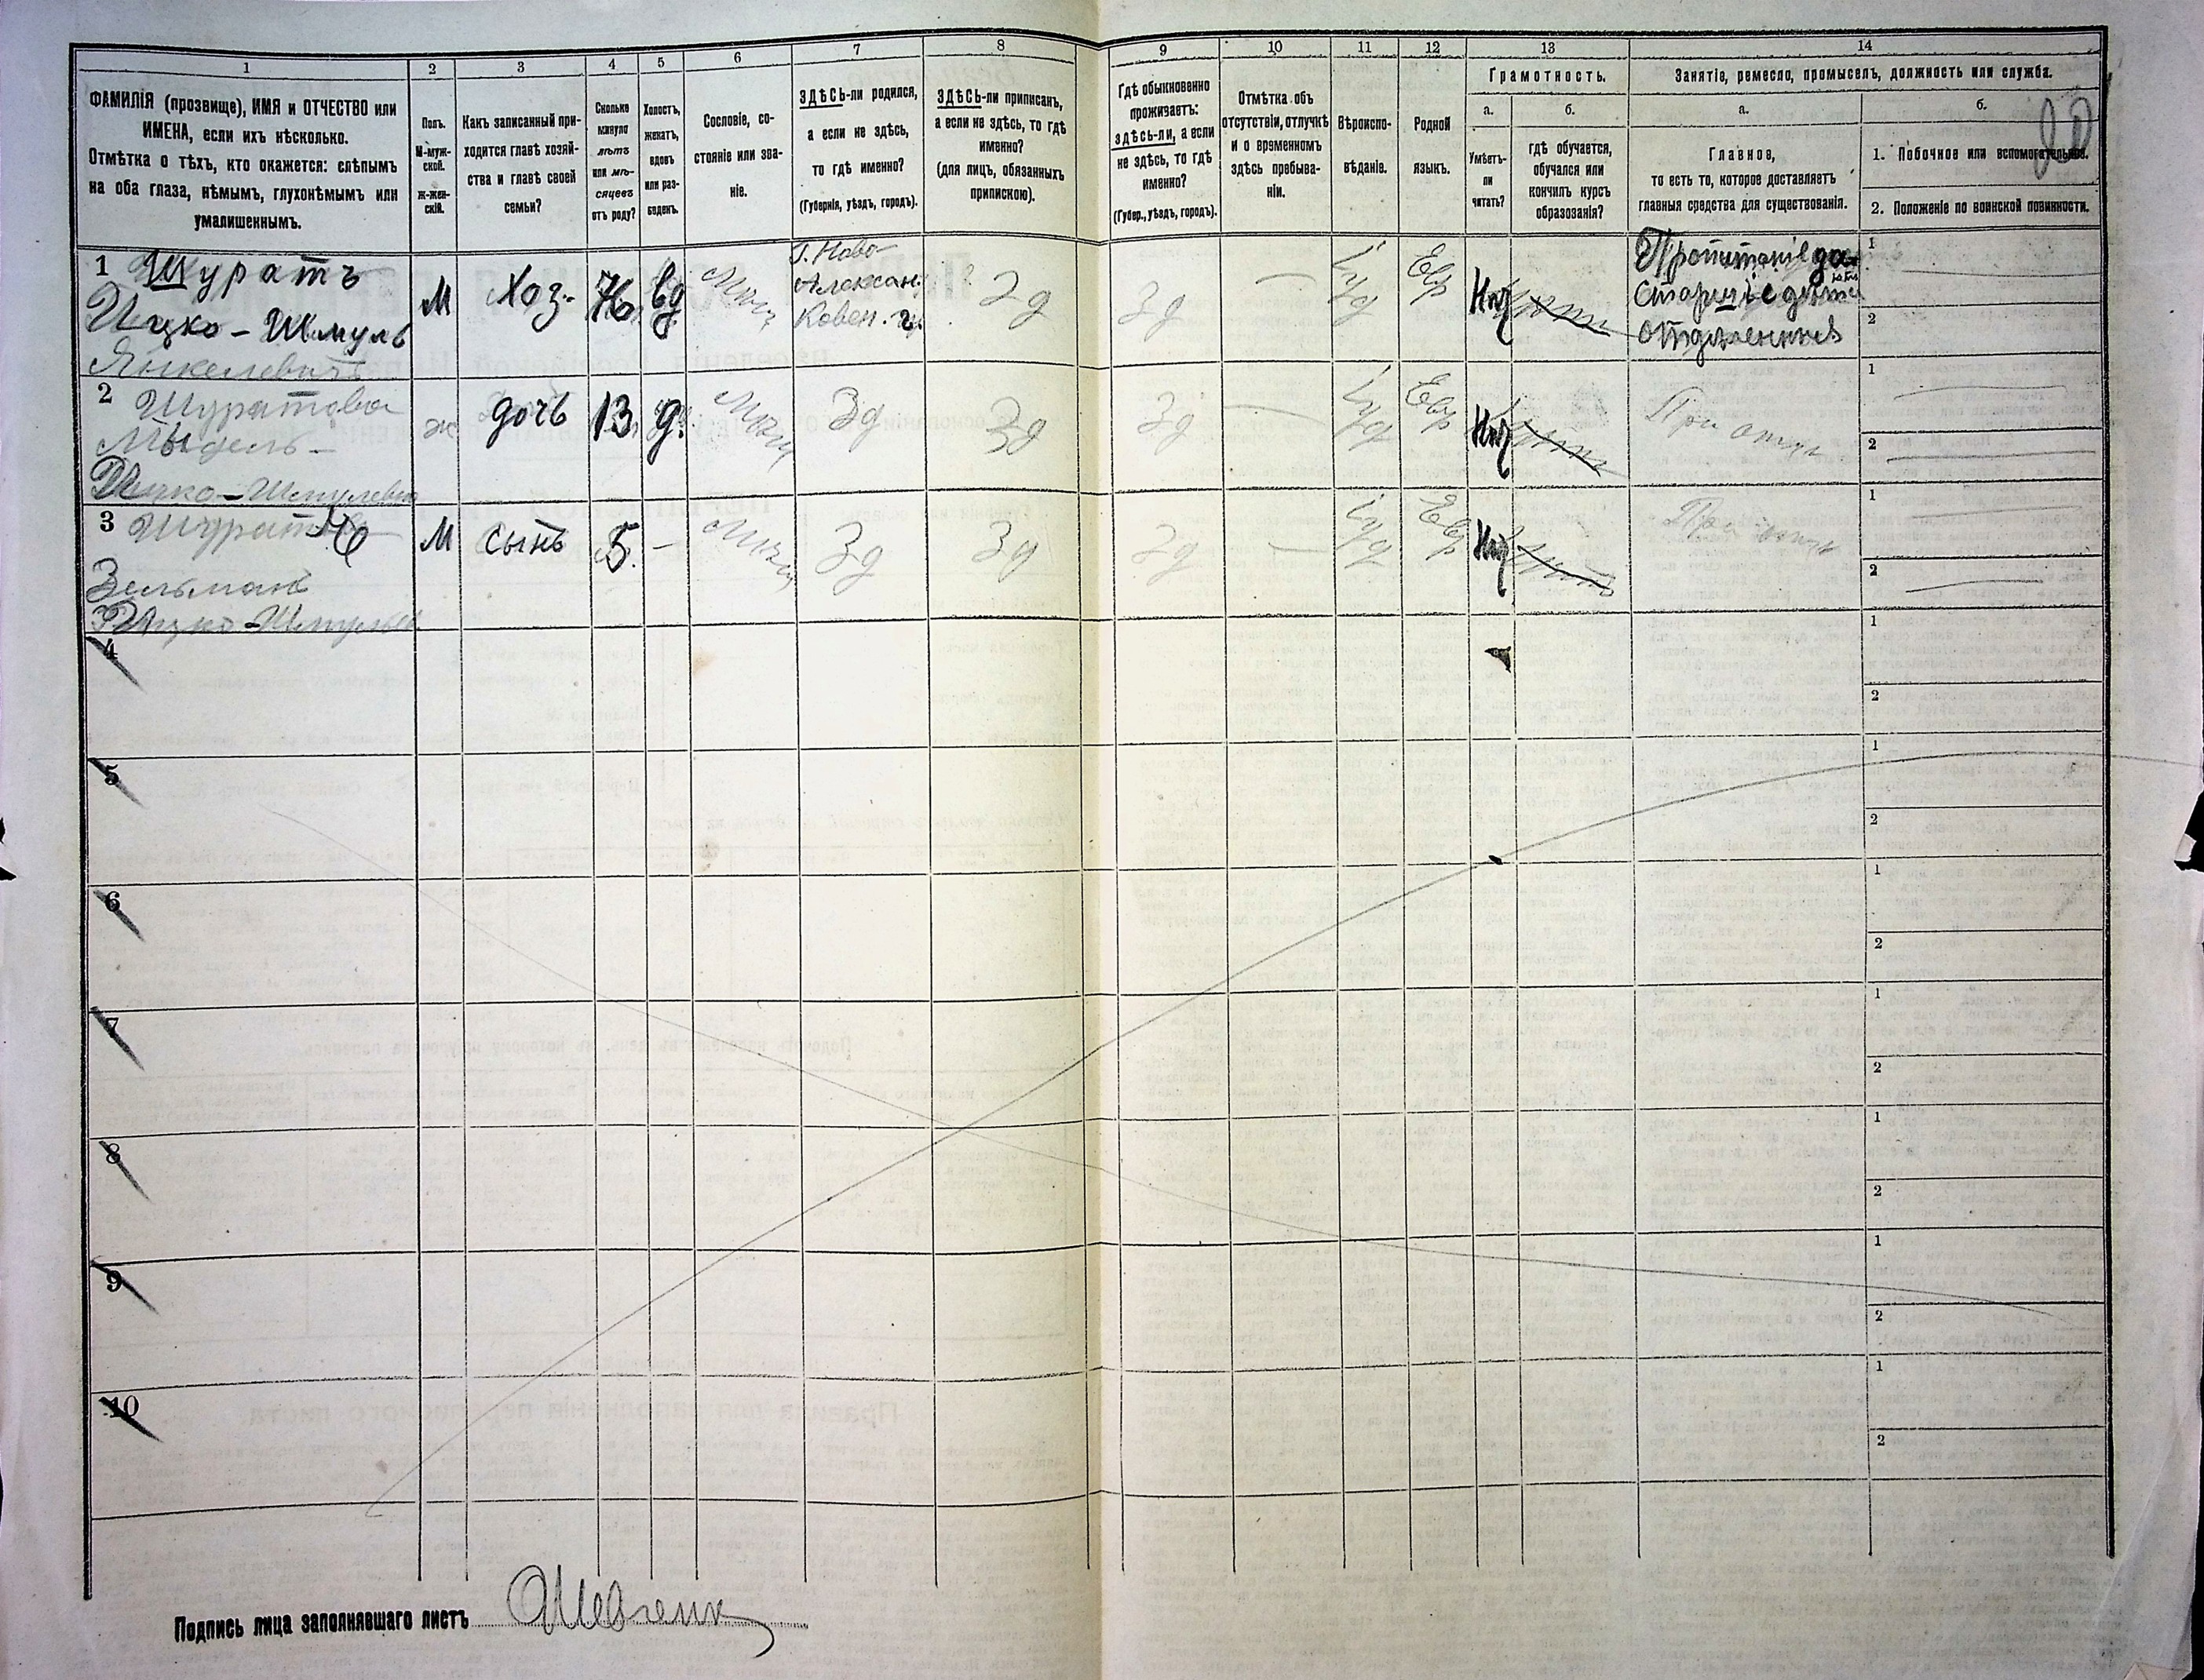 1
2
3
4
5
6
7
8
9
10
11
12
13
14
ФАМИЛІЯ (прозвище), ИМЯ и ОТЧЕСТВО или
ИМЕНА, если ихъ нѣсколько.
Отмѣтка о тѣхъ, кто окажется: слѣпымъ
на оба глаза, нѣмымъ, глухонѣмымъ или
умалишеннымъ.
Полъ.
М-муж-
ской.
Ж-жен-
скій.
Какъ записанный при-
ходится главѣ хозяй-
ства и главѣ своей
семьи?
Сколько
минуло
лѣтъ
или мѣ-
сяцевъ
отъ роду?
Холостъ,
женатъ,
вдовъ
или раз-
веденъ.
Сословіе, со-
стояніе или зва-
ніе.
ЗДѢСЬ-ли родился,
а если не здѣсь,
то гдѣ именно?
(Губернія, уѣздъ, городъ).
ЗДѢСЬ-ли приписан,
а если не здѣсь, то гдѣ
именно?
(для лицъ, обязанныхъ
припискою).
Гдѣ обыкновенно
проживаетъ:
здѣсь-ли, а если
не здѣсь, то гдѣ
именно?
(Губер., уѣздъ, городъ).
Отмѣтка объ
отсутствіи, отлучкѣ
и о временномъ
здѣсь пребыва-
ніи.
Вѣроиспо-
вѣданіе.
Родной
языкъ.
Грамотность.
а.
Умѣетъ-
ли
читать?
б.
гдѣ обучается,
обучался или
кончилъ курсъ
образованія?
Занятіе, ремесло, промыселъ, должность или служба.
а.
Главное,
то есть то, которое доставляетъ
главныя средства для существованія.
б.
1. Побочное или вспомогательное.
2. Положеніе по воинской повинности.
1 Шуратъ
Ицко-Шмуль
Янкелевичъ
М
Хоз.
вд
Мѣщ
Г. Ново-
Алексан.
Ковен. г.
Зд
Зд
Іуд
Евр
Нѣт
Пропитаніе да
ютъ
старшіе дѣти
отдѣленные
1
2
2 Шуратова
Мыдель-
Ицко-Шмулевна
ж
дочь
13
д.
Мѣщ
Зд
Зд
Зд
Іуд
Евр
Нѣт
При отцѣ
1
2
3 Шуратъ
Зельманъ
Ицко-Шмулевъ
М
сынъ
5.
Мѣщ
Зд
Зд
Зд
Іуд
Евр
Нѣт
При отцѣ
1
2
4
1
2
5
1
2
6
1
2
7
1
2
8
1
2
9
1
2
10
1
2
Подпись лица заполнявшаго листъ